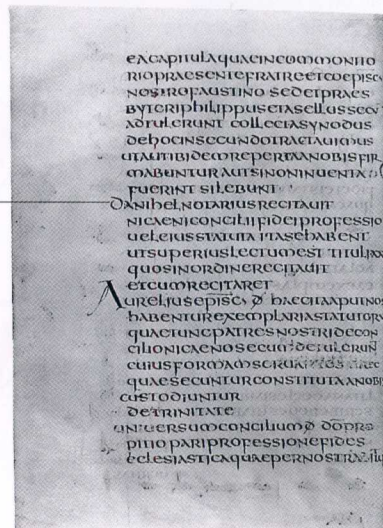 eacapitulaquaeincommonito
riopraesentefratreetcoepisc
nostrofaustino sedetpraes
byteriphilippusetasellussecu
adtulerunt collectasynodus
dehocinsecundotractauimus
utalitibidemrepertaanobisfir
mabuntur autsinoninuenta
fuerint silebunt
danihelnotariusrecitauit
nicaeniconciliifideiprofessio
ueleiusstatuta itasehabent
utsuperiuslectumest
quosinordinerecitauit
etcumrecitaret
aureliusepisc
habenturexemplariastatutoru
quaetuncpatresnostridecon
cilionicaenosecum detulerun
cuiusformamseruantes
quaesecunturconstitutaanobi
custodiuntur
detrinitate
uniuersumconcilium
pitio pariprofessionefides
eclesiasticaquaepernostra